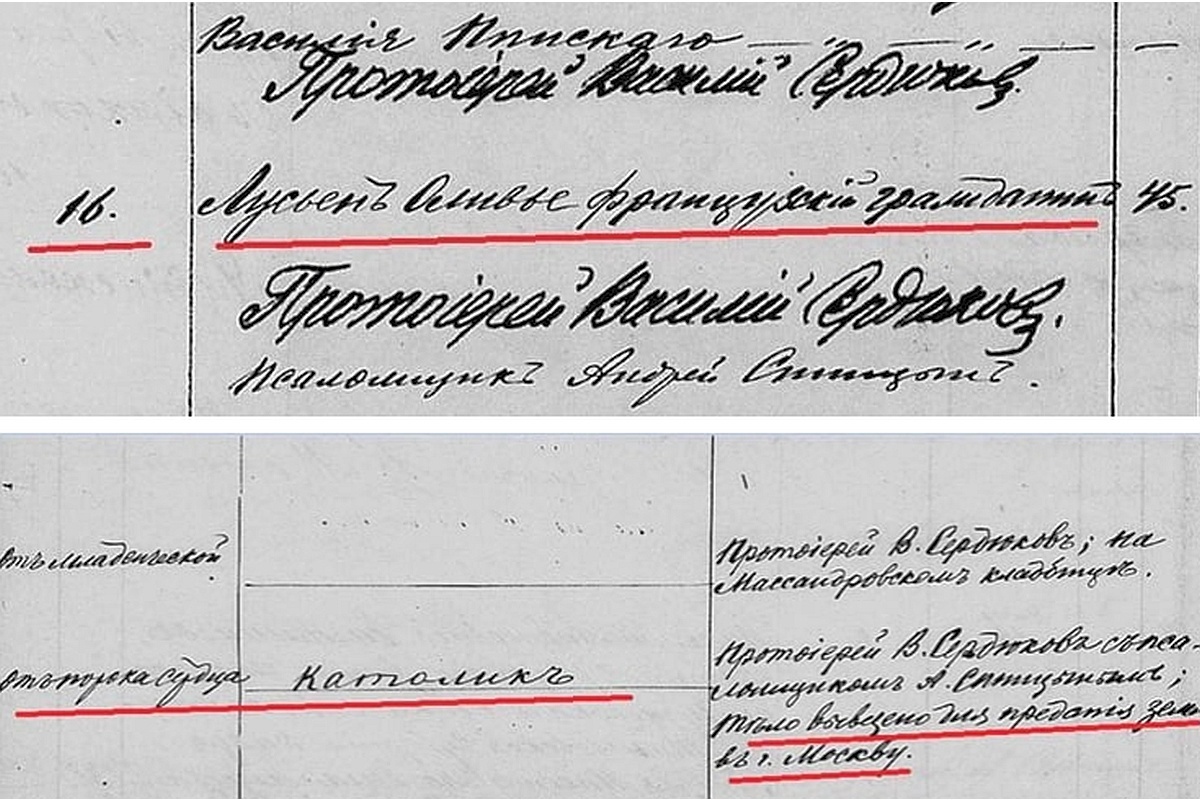 Василія Ялтинскаго
Протоіерей Василій Сердюковъ.
16. Лусьенъ Оливье французскій гражданинъ 45.
Протоіерей Василій Сердюковъ.
Псаломщикъ Андрей Синицынъ.
Отъ младенческой
Протоіерей В. Сердюковъ; на
Массандровскомъ кладбищѣ.
Протоіерей В. Сердюковъ съ пса-
Отъ порока сердца Католикъ
ломщикомъ А. Синицынымъ;
тѣло вывезено для преданія земл
въ г. Москву.